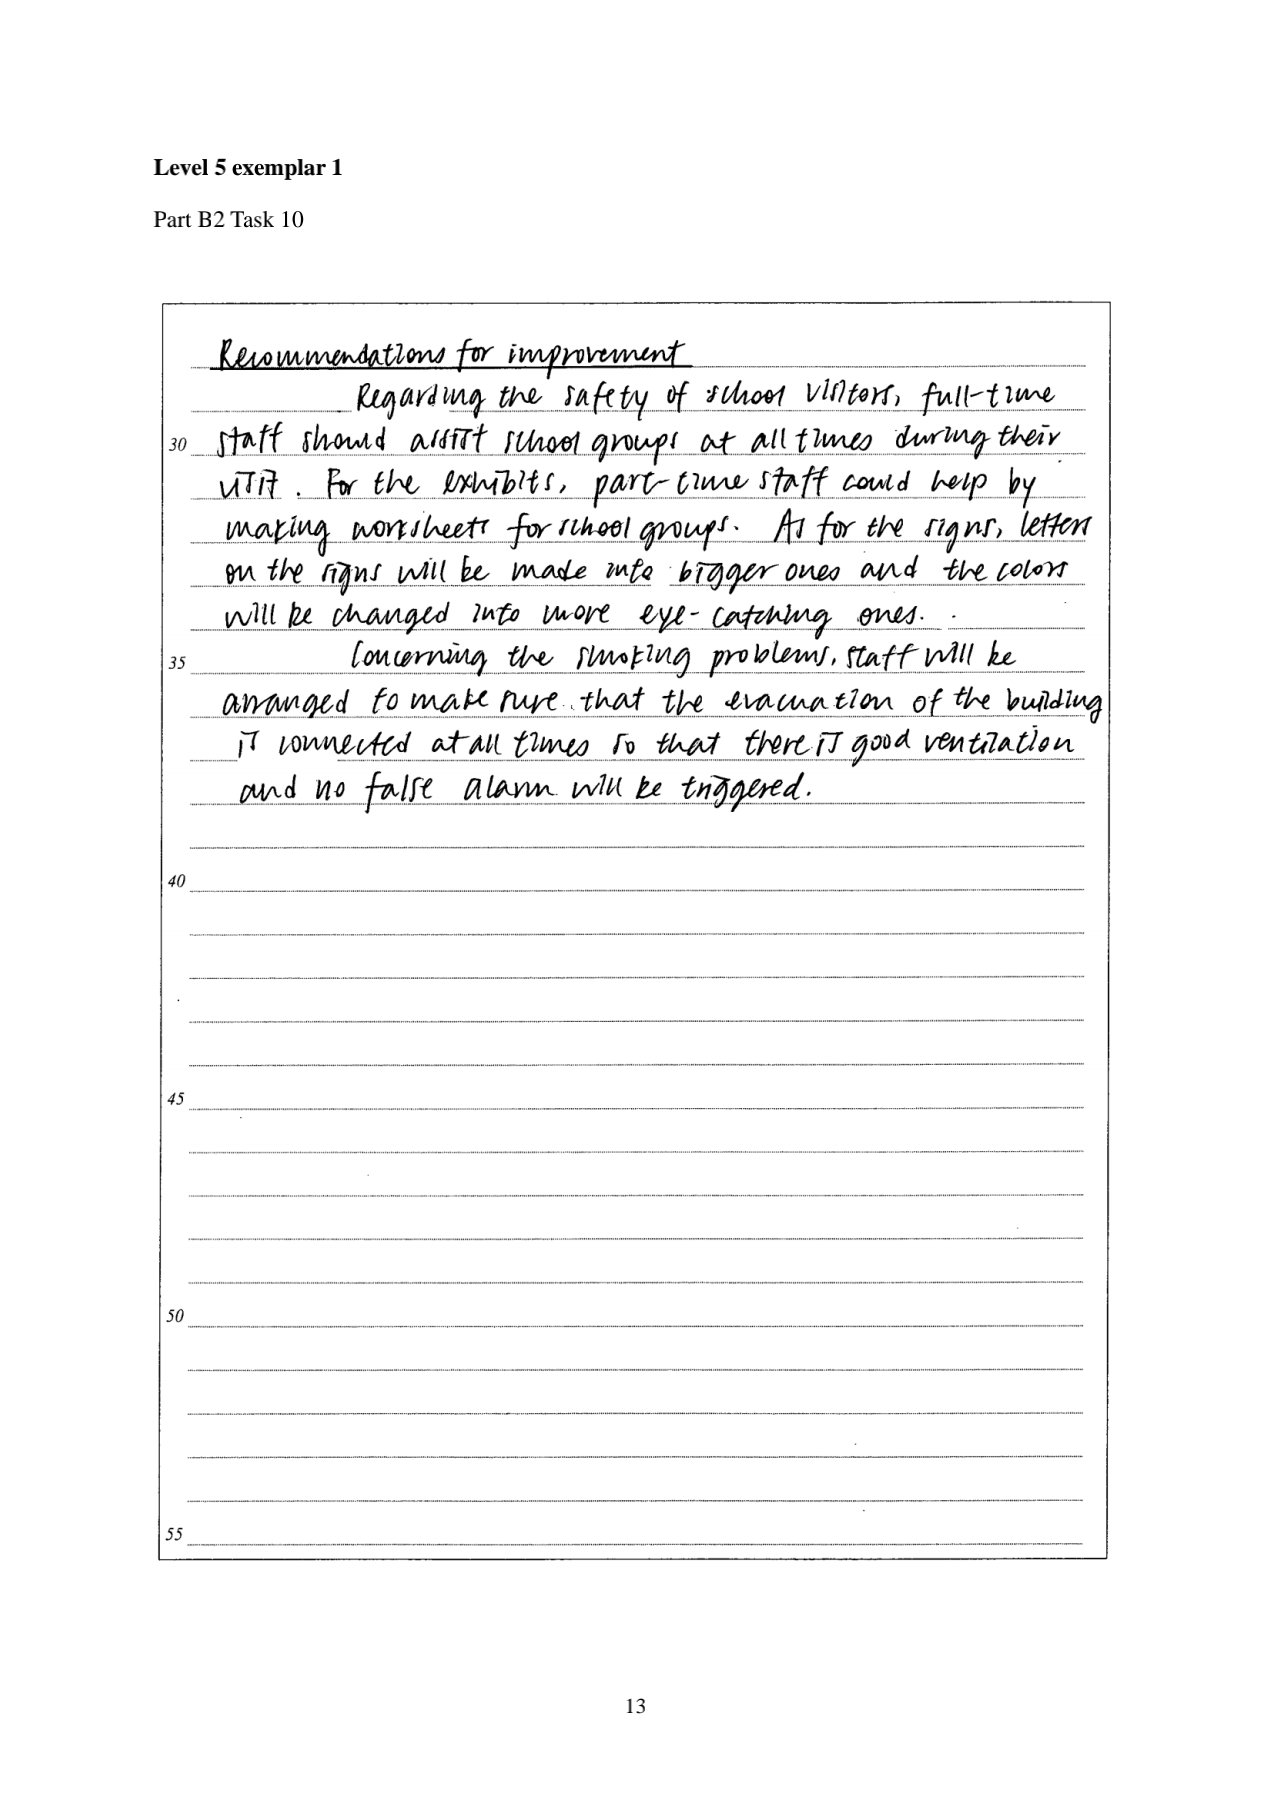 Level 5 exemplar 1
Part B2 Task 10
Recommendations for improvement
Regarding the safety of school visitors, full-time
30 staff should assist school groups at all times during their
visit. For the exhibits, part-time staff could help by
making worksheets for school groups. As for the signs, letters
on the signs will be made into bigger ones and the colors
will be changed into more eye-catching ones.
35 Concerning the smoking problems, staff will be
arranged to make sure that the evacuation of the building
is connected at all times so that there is good ventilation
and no false alarm will be triggered.
40
45
50
55
13